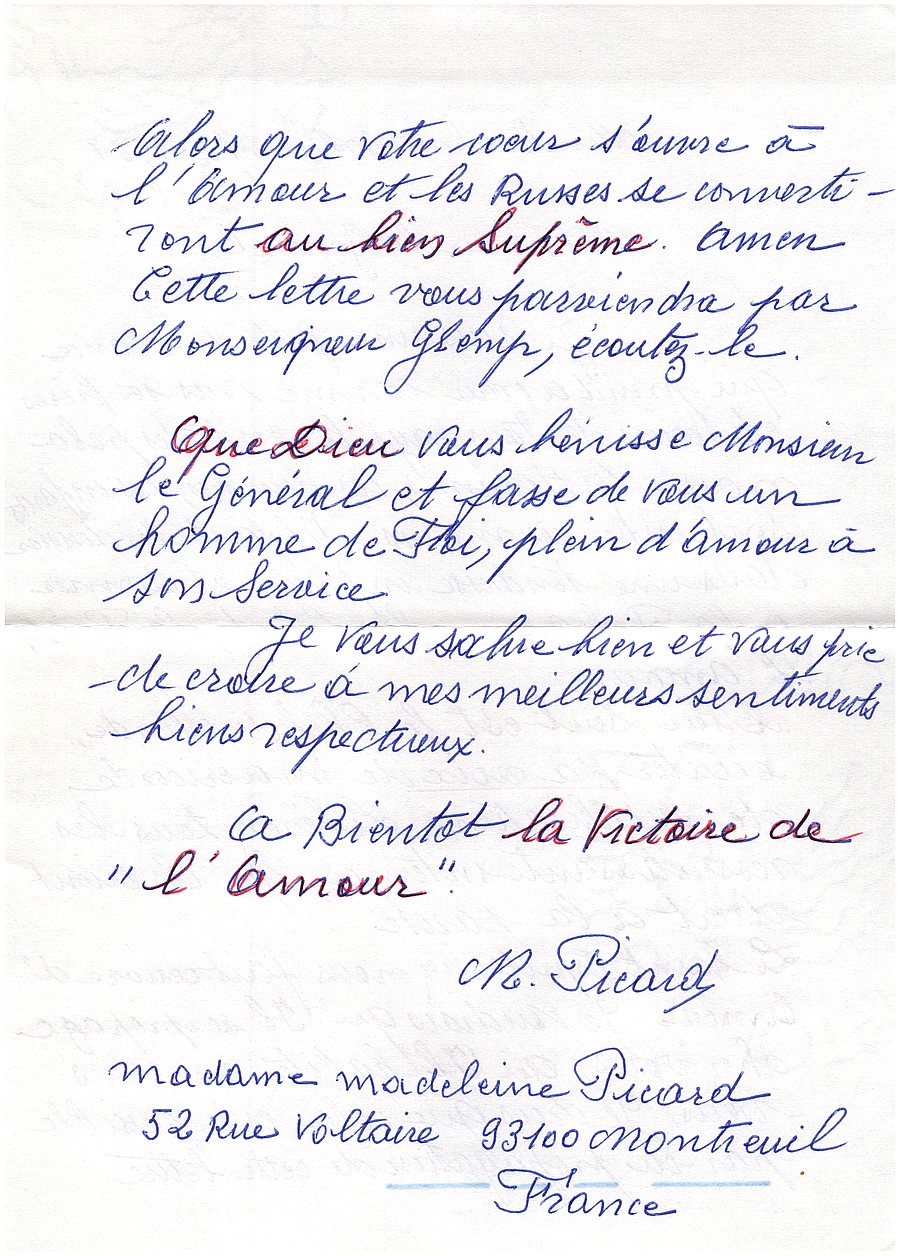 Alors que votre coeur s'ouvre à
l'Amour et les Russes se converti-
ront au bien Suprême. Amen
Cette lettre vous parviendra par
Monseigneur Glemp, écoutez-le.
Que Dieu vous bénisse Monsieur
le Général et fasse de vous un
homme de Foi, plein d'amour à
son Service
Je vous salue bien et vous prie
de croire à mes meilleurs sentiments
biens respectueux.
A Bientot la Victoire de
"l'Amour".
M. Picard
madame madeleine Picard
52 Rue Voltaire 93100 Montreuil
France